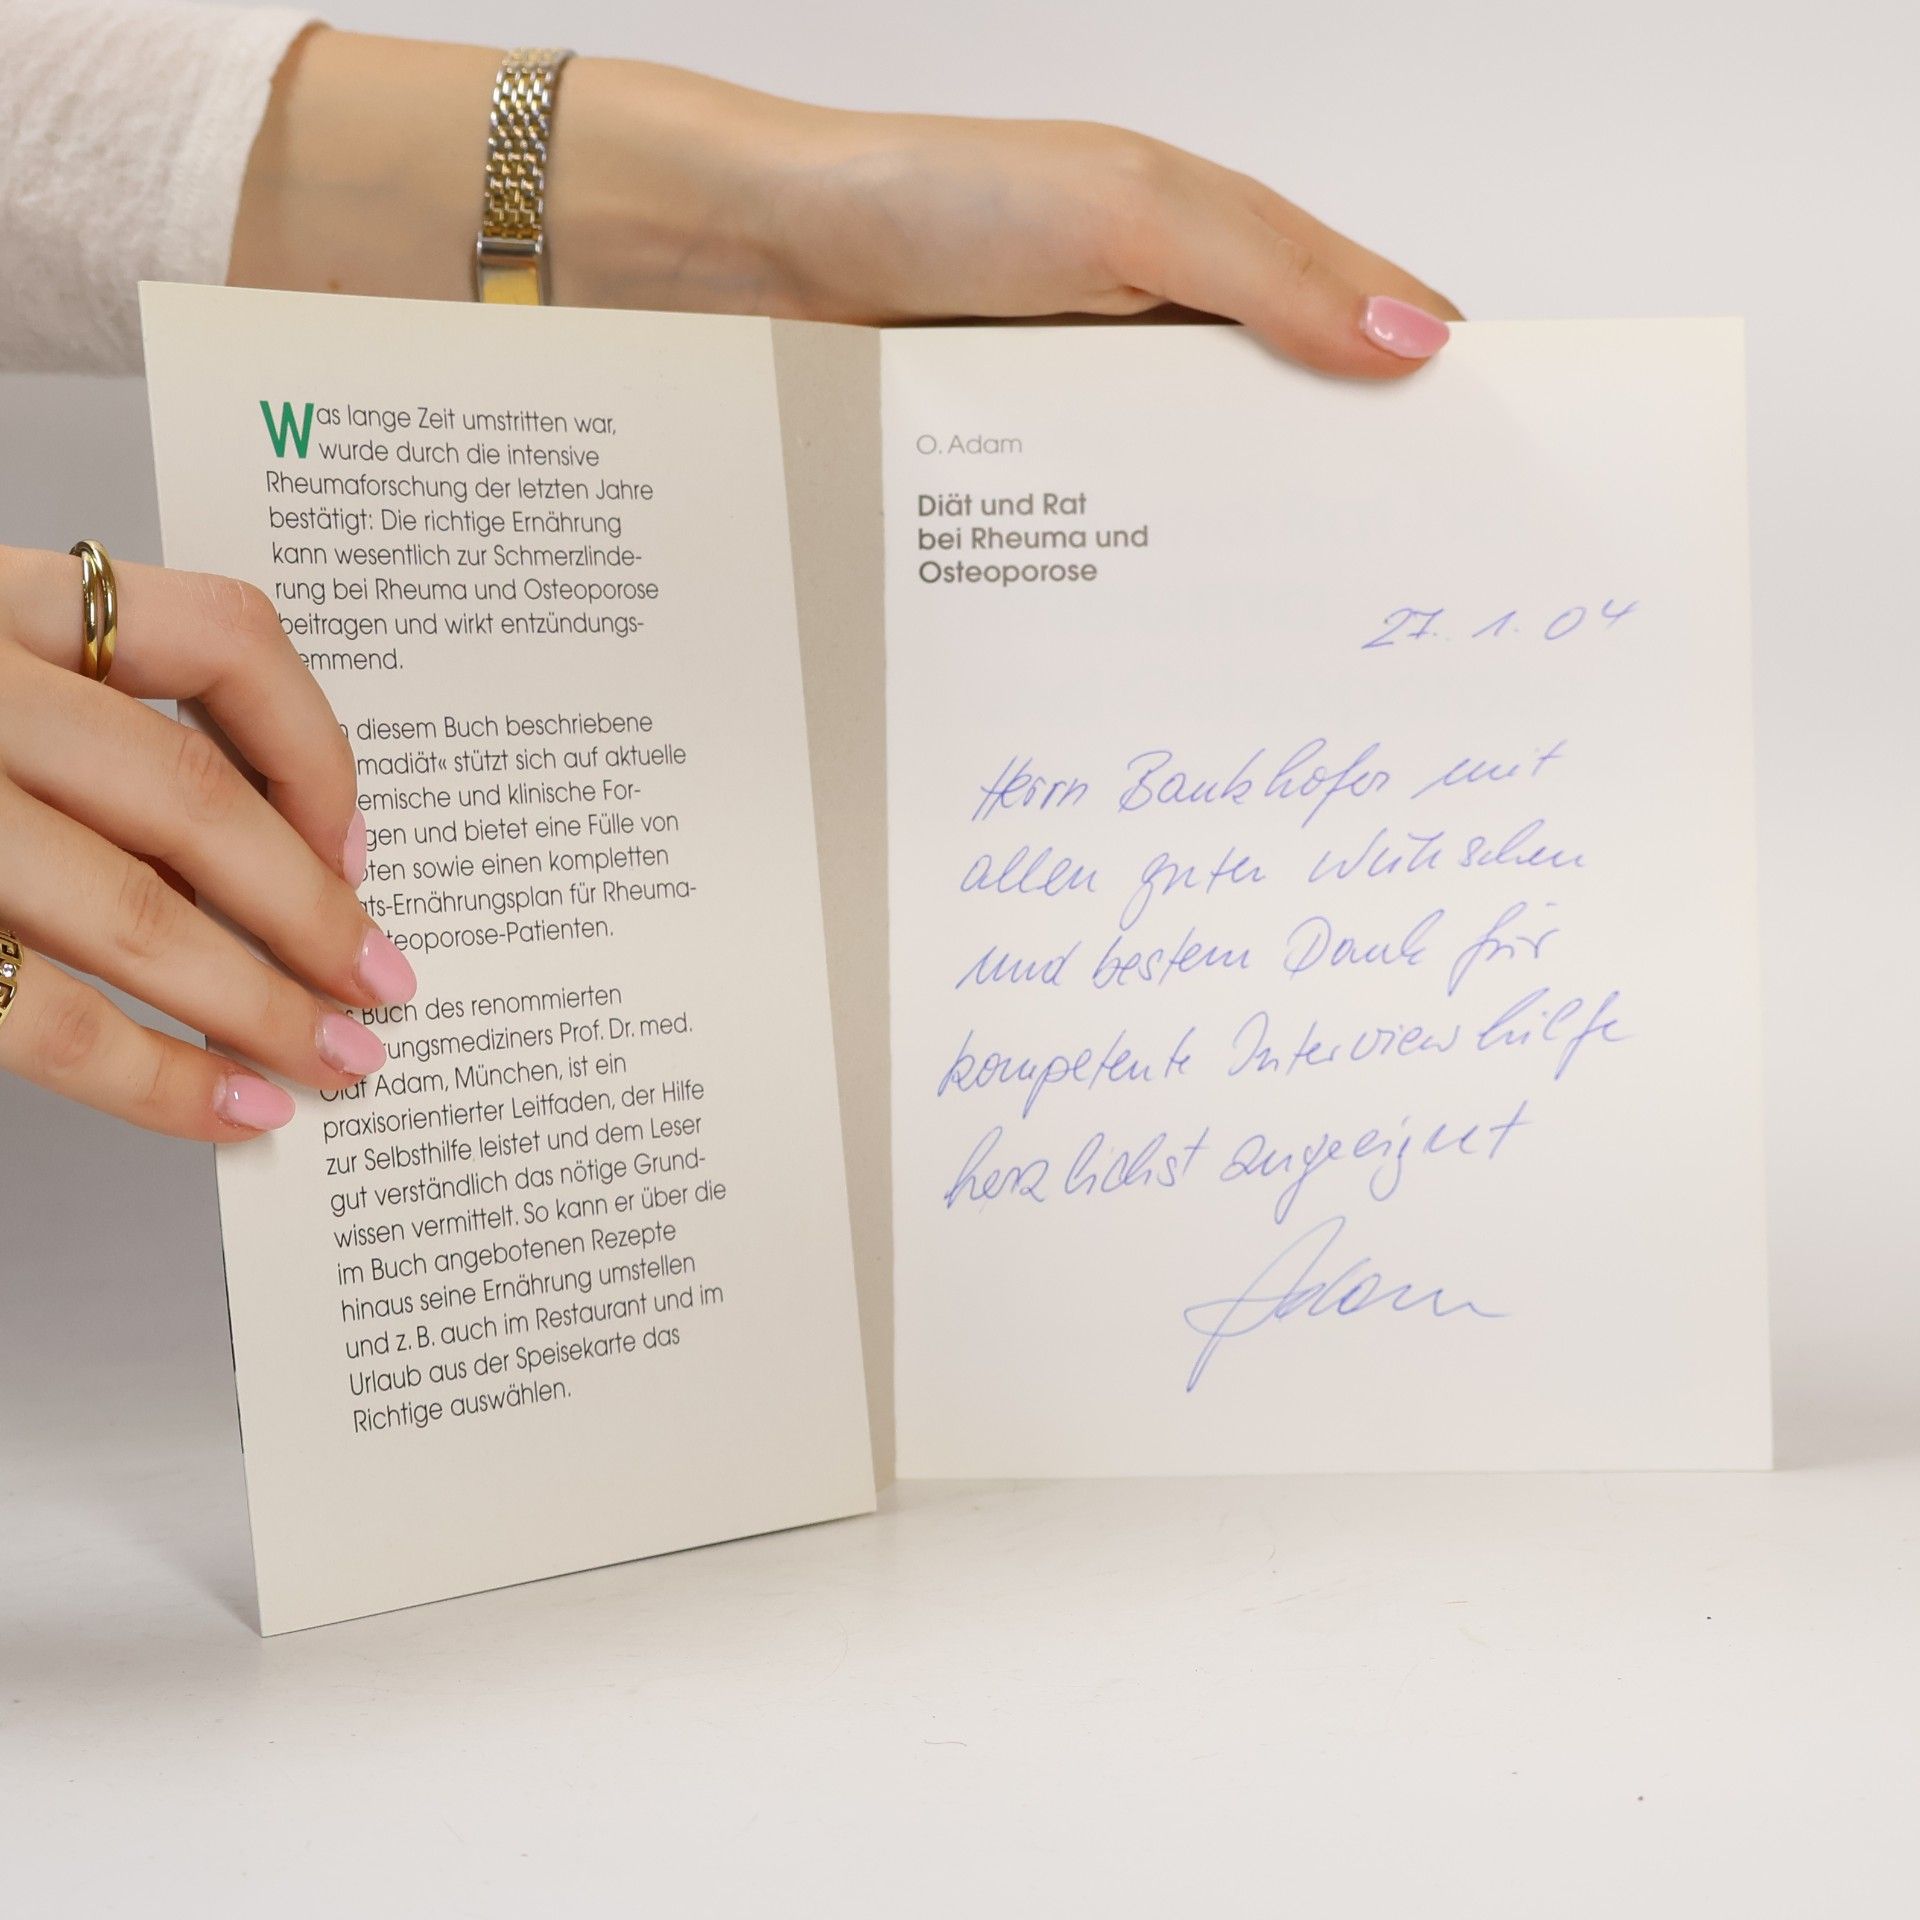 Was lange Zeit umstritten war,
wurde durch die intensive
Rheumaforschung der letzten Jahre
bestätigt: Die richtige Ernährung
kann wesentlich zur Schmerzlinde-
rung bei Rheuma und Osteoporose
beitragen und wirkt entzündungs-
emmend.
diesem Buch beschriebene
madiät« stützt sich auf aktuelle
emische und klinische For-
gen und bietet eine Fülle von
ten sowie einen kompletten
ts-Ernährungsplan für Rheuma-
teoporose-Patienten.
Buch des renommierten
ungsmediziners Prof. Dr. med.
Olaf Adam, München, ist ein
praxisorientierter Leitfaden, der Hilfe
zur Selbsthilfe leistet und dem Leser
gut verständlich das nötige Grund-
wissen vermittelt. So kann er über die
im Buch angebotenen Rezepte
hinaus seine Ernährung umstellen
und z. B. auch im Restaurant und im
Urlaub aus der Speisekarte das
Richtige auswählen.
O. Adam
Diät und Rat
bei Rheuma und
Osteoporose
27. 1. 04
Herrn Bankhofer mit
allen guten Wünschen
und bestem Dank für
kompetente Interviewhilfe
herzlichst zugeeignet
Adam